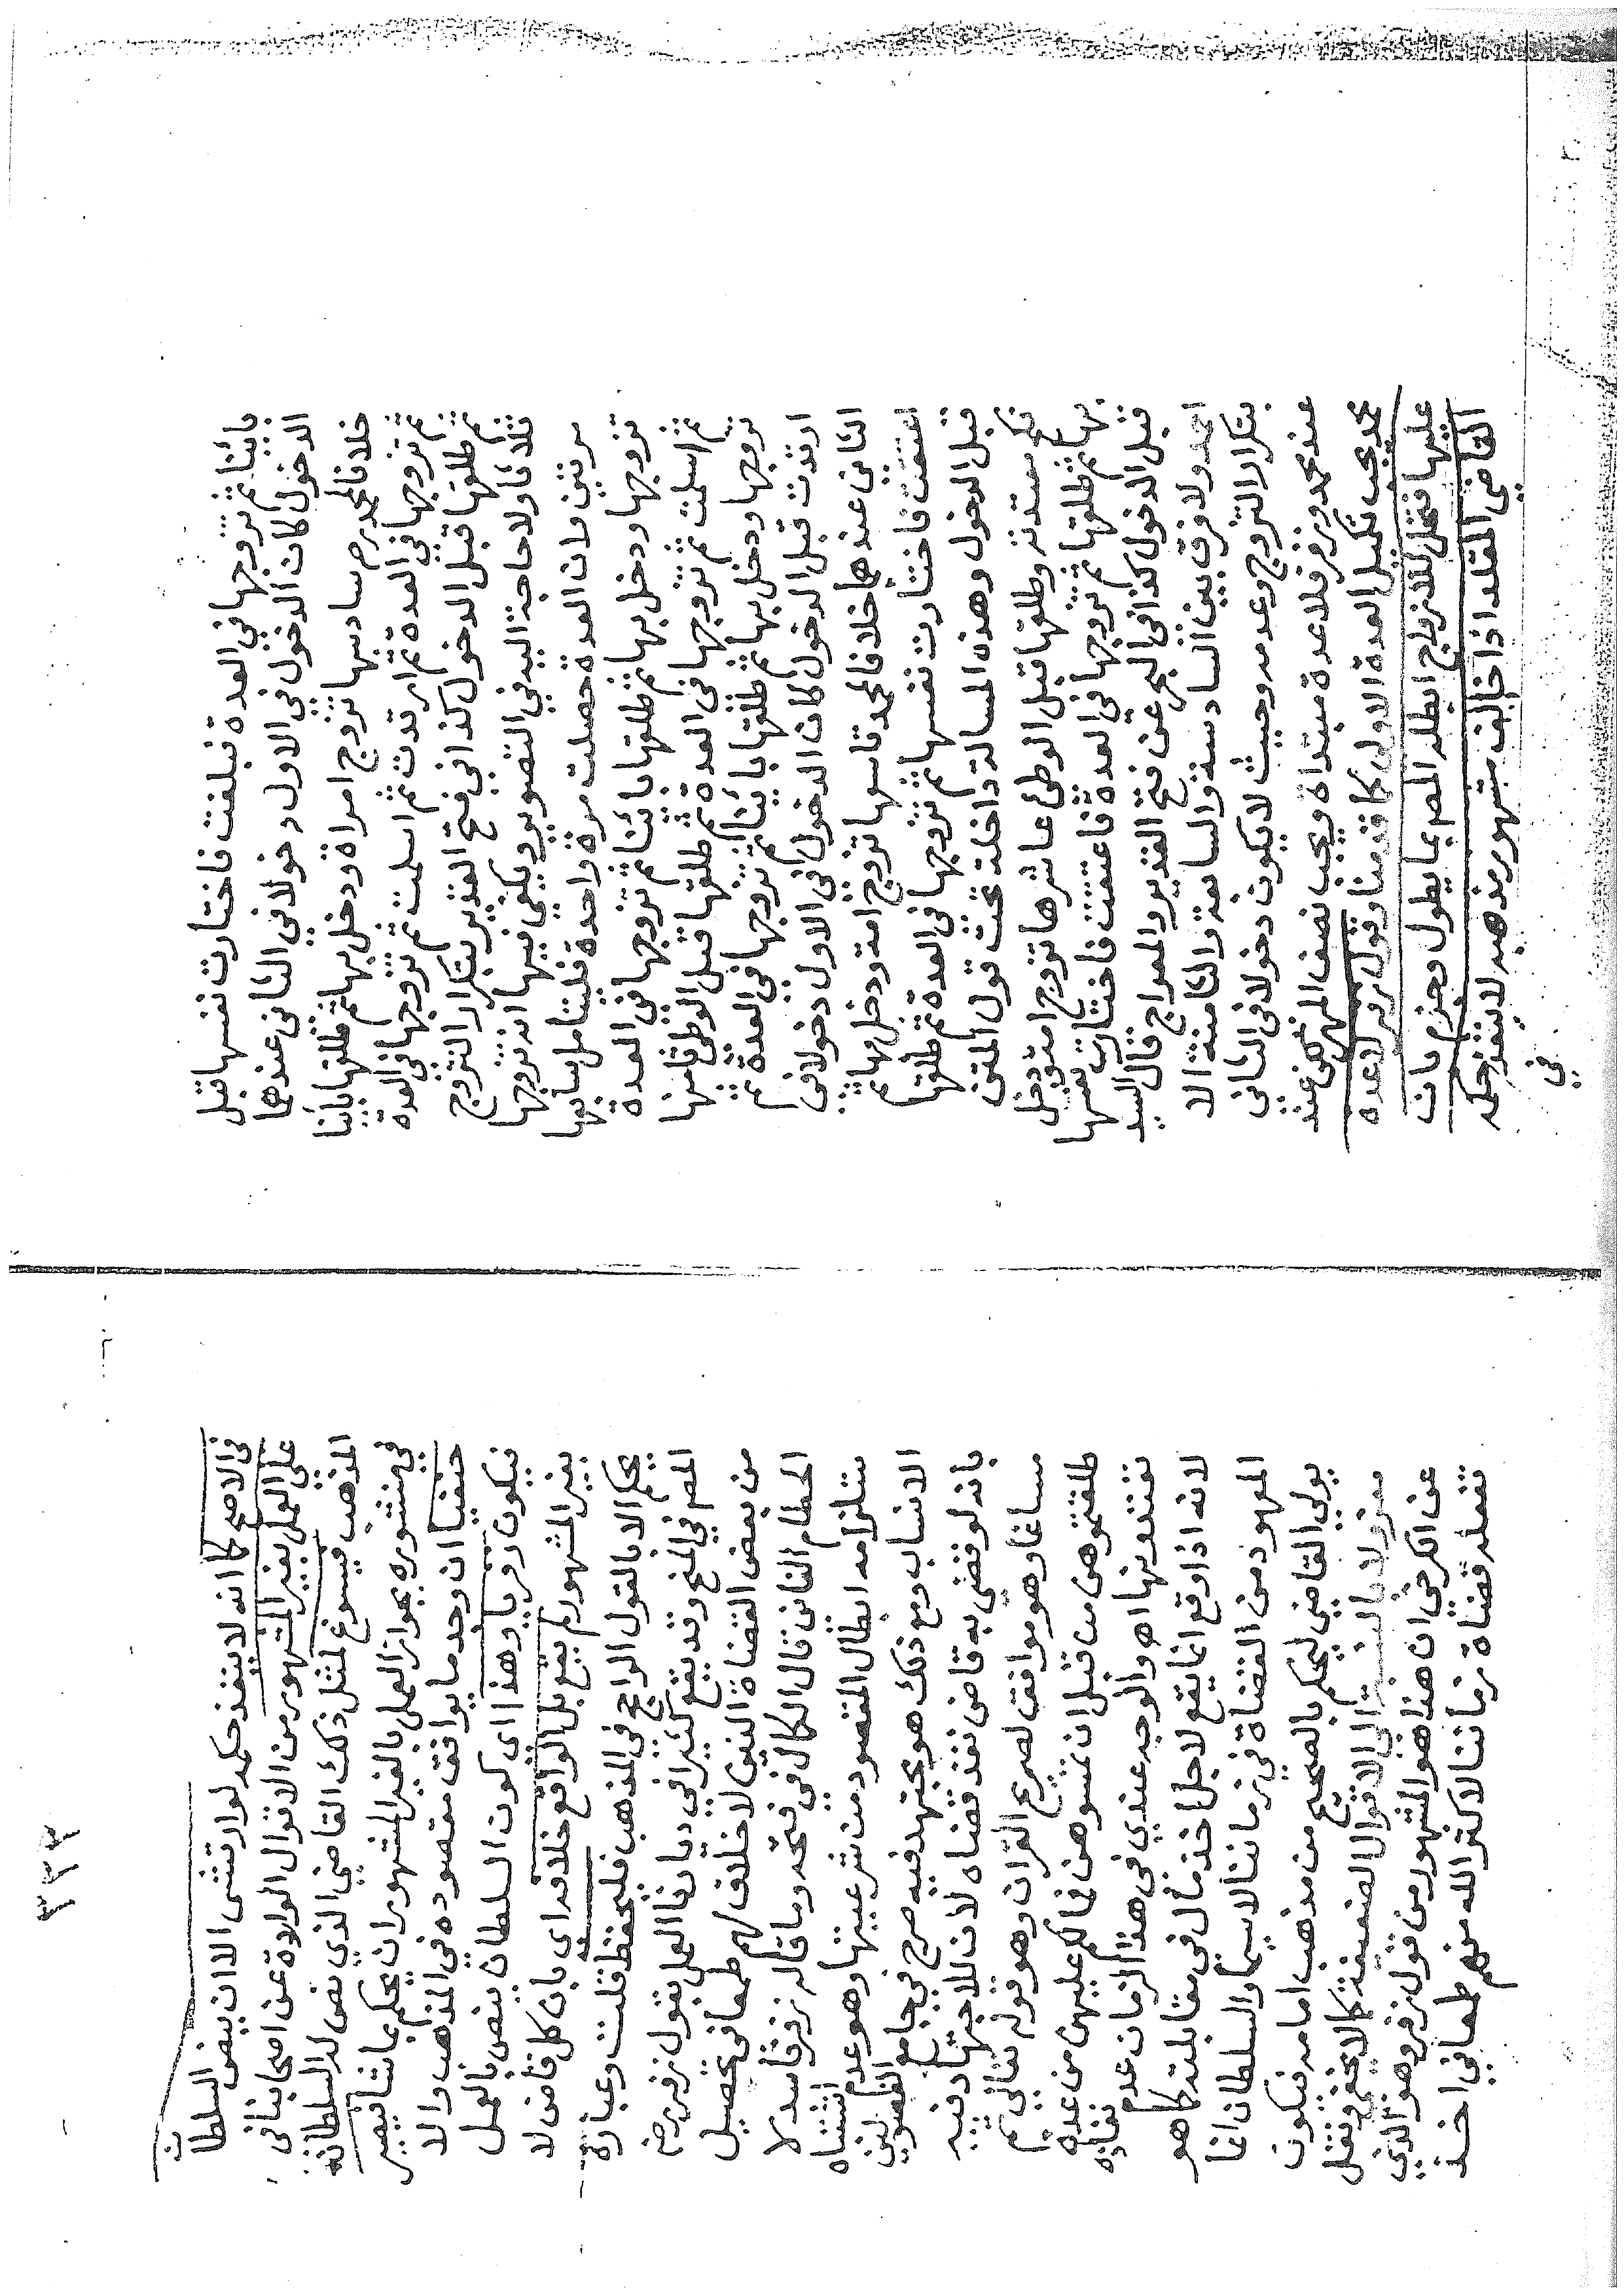 بائنا ثم تزوجها في العدة فبلغت فاختارت نفسها قبل
الدخول كان الدخول في الاول دخولا في الثاني عندهما
خلافا لمحمد رحم سادسها تزوج امراة ودخل بها ثم طلقها بائنا
ثم تزوجها في العدة ثم ارتدت ثم اسلمت ثم تزوجها في العدة
ثم طلقها قبل الدخول كذا في فتح القدير بتكرار التزوج
ثلاثا ولا حاجة اليه في التصوير ويكفي فيها انه تزوجها
مرتين لان العدة حصلت مرة واحدة فليتامل سابعها
تزوجها ودخل بها ثم طلقها بائنا ثم تزوجها في العدة
ثم اسلمت ثم تزوجها في العدة ثم طلقها قبل الوطئ ثامنها
تزوجها ودخل بها ثم طلقها بائنا ثم تزوجها في العدة ثم
ارتدت قبل الدخول كان الدخول في الاول دخولا في
الثاني عندهما خلافا لمحمد تاسعها تزوج امة ودخل بها ثم
اعتقت فاختارت نفسها ثم تزوجها في العدة ثم طلقها
قبل الدخول وهذه المسالة داخلة تحت قول المتن
نكح معتدته وطلقها قبل الوطئ عاشرها تزوج امة ودخل
بها ثم طلقها ثم تزوجها في العدة فاعتقت فاختارت نفسها
قبل الدخول كذا في البحر عن فتح القدير والمعراج قال السيد
احمد ولا فرق بين السادسة والسابعة والثامنة الا
بتكرار التزوج وعدمه وحيث لا يكون دخولا في الثاني
عند محمد وزفر فلا عدة مبتداة ويجب نصف المهر لكن عند
محمد يجب تكميل العدة الاولى كما قدمنا وقول زفر لا عدة
عليها فتحل للازواج ابطله المص بما يطول وجزم بان
القاضي المقلد اذا خالف مشهور مذهبه لا ينفذ حكمه
في
في الاصح كما انه لا ينفذ حكمه لو ارتشى الا ان ينص السلطان
على العمل بغير المشهور من الاقوال الولاة عن اصحابنا في
المذهب فيسوغ لمثل ذلك القاضي الذي نص له السلطان
في منشوره بجواز العمل بالغير المشهور ان يحكم بما شا فيصير
حنفيا ان وجد ما يوافق مقصوده في المذهب والا
فيكون زفريا وهذا اي كون السلطان ينص بالعمل
بغير المشهور لم يقع بل الواقع خلافه اي بان كل قاض لا
يحكم الا بالقول الراجح في المذهب فليحفظ قلت وعبارة
المص في المنح وقد يقع كثيرا في ديارنا العمل بقول زفر رح
من بعض القضاة الذين لا خلاق لهم طمعا في تحصيل
الحطام الفاني قال الكمال في فتحه وما قاله زفر فاسد لا
ستلزامه ابطال المقصود من شرعيتها وهو عدم اشتباه
الانساب ومع ذلك هو مجتهد فيه صرح في جامع الفصولين
بانه لو قضى به قاض نفذ قضاه لان للاجتهاد فيه
مساغا وهو موافق لصريح القران وهو قوله تعالى ثم
طلقتموهن من قبل ان تمسوهن فما لكم عليهن من عدة
تعتدونها اه والوجه عندي في هذا الزمان عدم نفاذه
لانه اذا وقع انما يقع لاجل اخذ مال في مقابلته كما هو
المعهود من القضاة في زماننا لا سيما والسلطان انما
يولي القاضي ليحكم بالصحيح من مذهب امامه فيكون
معزولا بالنسبة الى الاقوال الضعيفة كما لا يخفى ونقل
عن الكرخي ان هذا هو المشهور من قول زفر وهو الذي
تقلد قضاة زماننا لاكثر الله منهم طمعا في اخذ